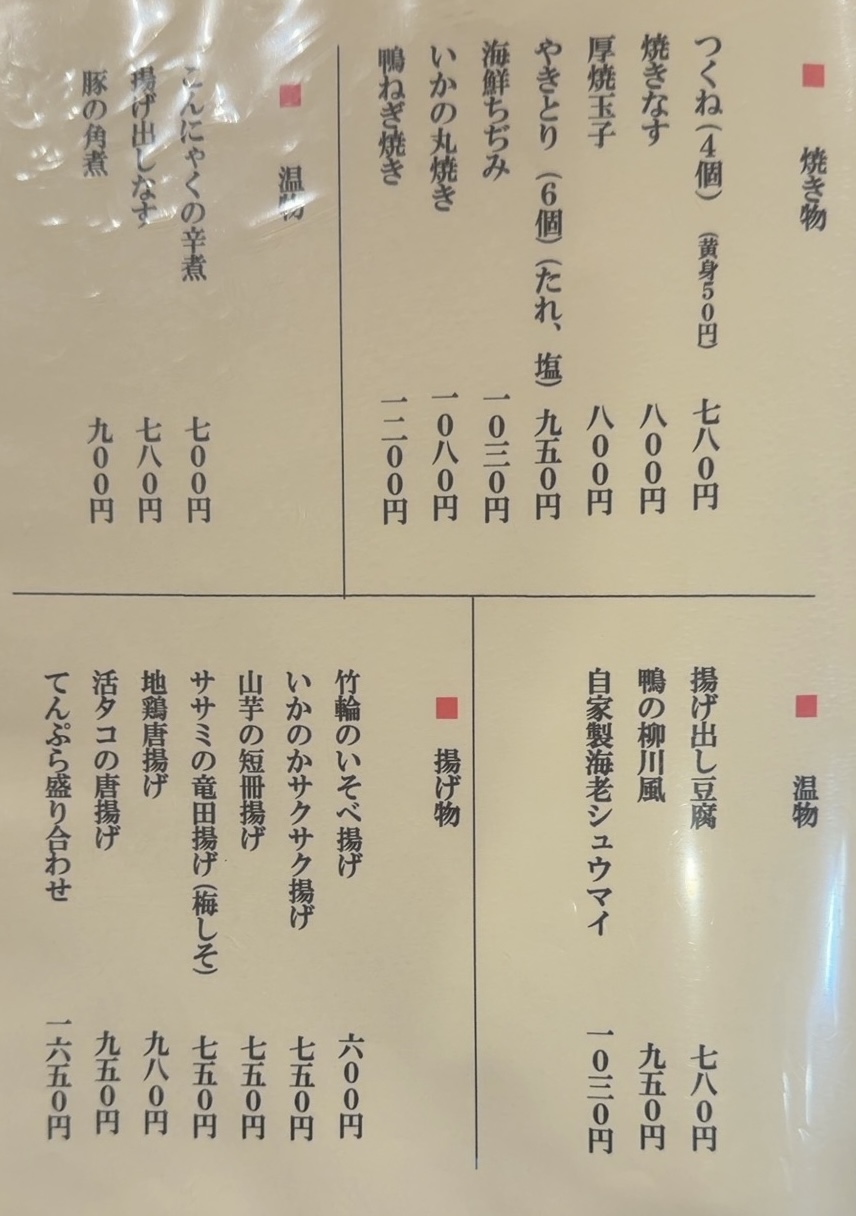 ■ 焼き物
つくね(4個) (黄身50円) 七八0円
焼きなす 八00円
厚焼玉子 八00円
やきとり (6個)(たれ、塩) 九五0円
海鮮ちぢみ 一0三0円
いかの丸焼き 一0八0円
鴨ねぎ焼き 一二00円
■ 温物
こんにゃくの辛煮 七00円
揚げ出しなす 七八0円
豚の角煮 九00円
■ 温物
揚げ出し豆腐 七八0円
鴨の柳川風 九五0円
自家製海老シュウマイ 一0三0円
■ 揚げ物
竹輪のいそべ揚げ 六00円
いかのかサクサク揚げ 七五0円
山芋の短冊揚げ 七五0円
ササミの竜田揚げ(梅しそ) 七五0円
地鶏唐揚げ 九八0円
活タコの唐揚げ 九五0円
てんぷら盛り合わせ 一六五0円